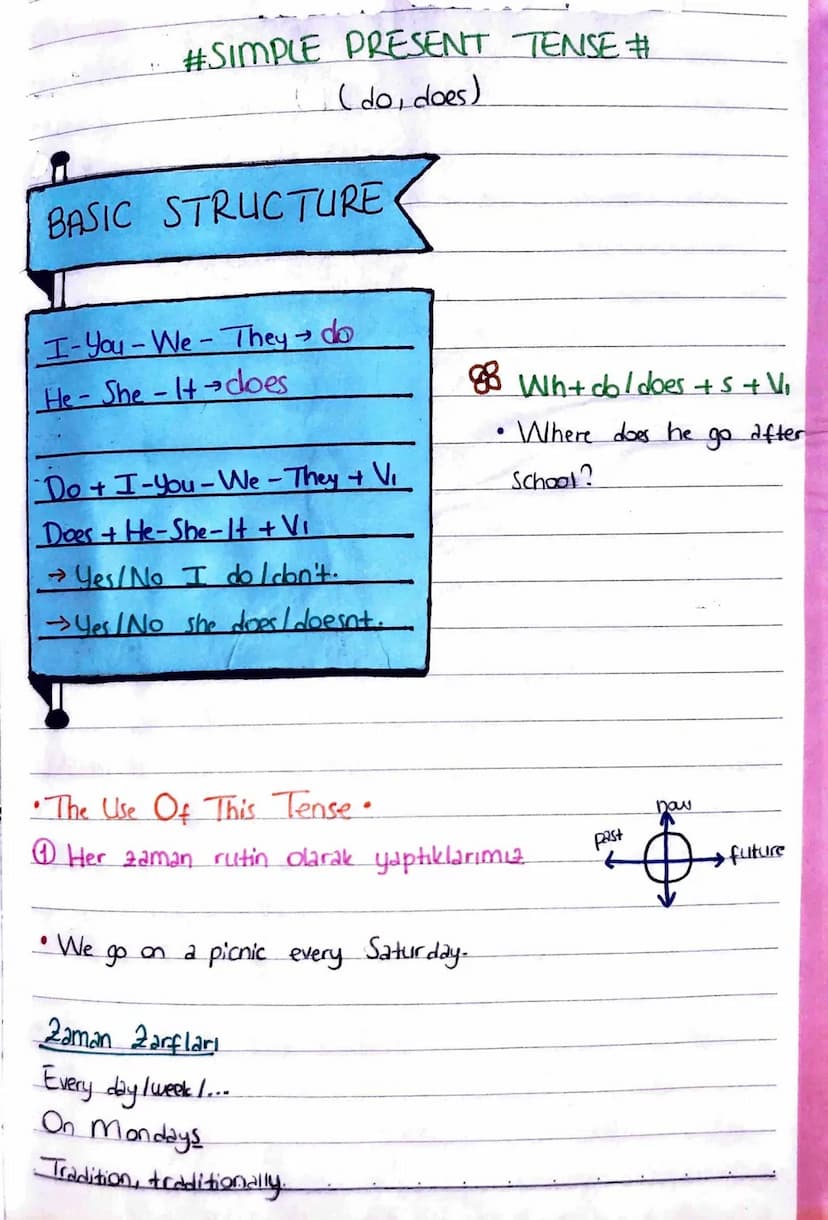 #SIMPLE PRESENT TENSE#
(do, does)
BASIC STRUCTURE
I-You-We-They→do
He-She-It→does
Do+I-You-We-They+V1
Does+He-She-It+V1
→Yes/No I do/don't.
→Yes/No she does/doesnt.
Wh+do/does+s+V1
• Where does he go after
school?
• The Use Of This Tense •
① Her zaman rutin olarak yaptıklarımız
now
past
future
• We go on a picnic every Saturday.
Zaman Zarfları
Every day/week/...
On Mondays
Tradition, traditionally.